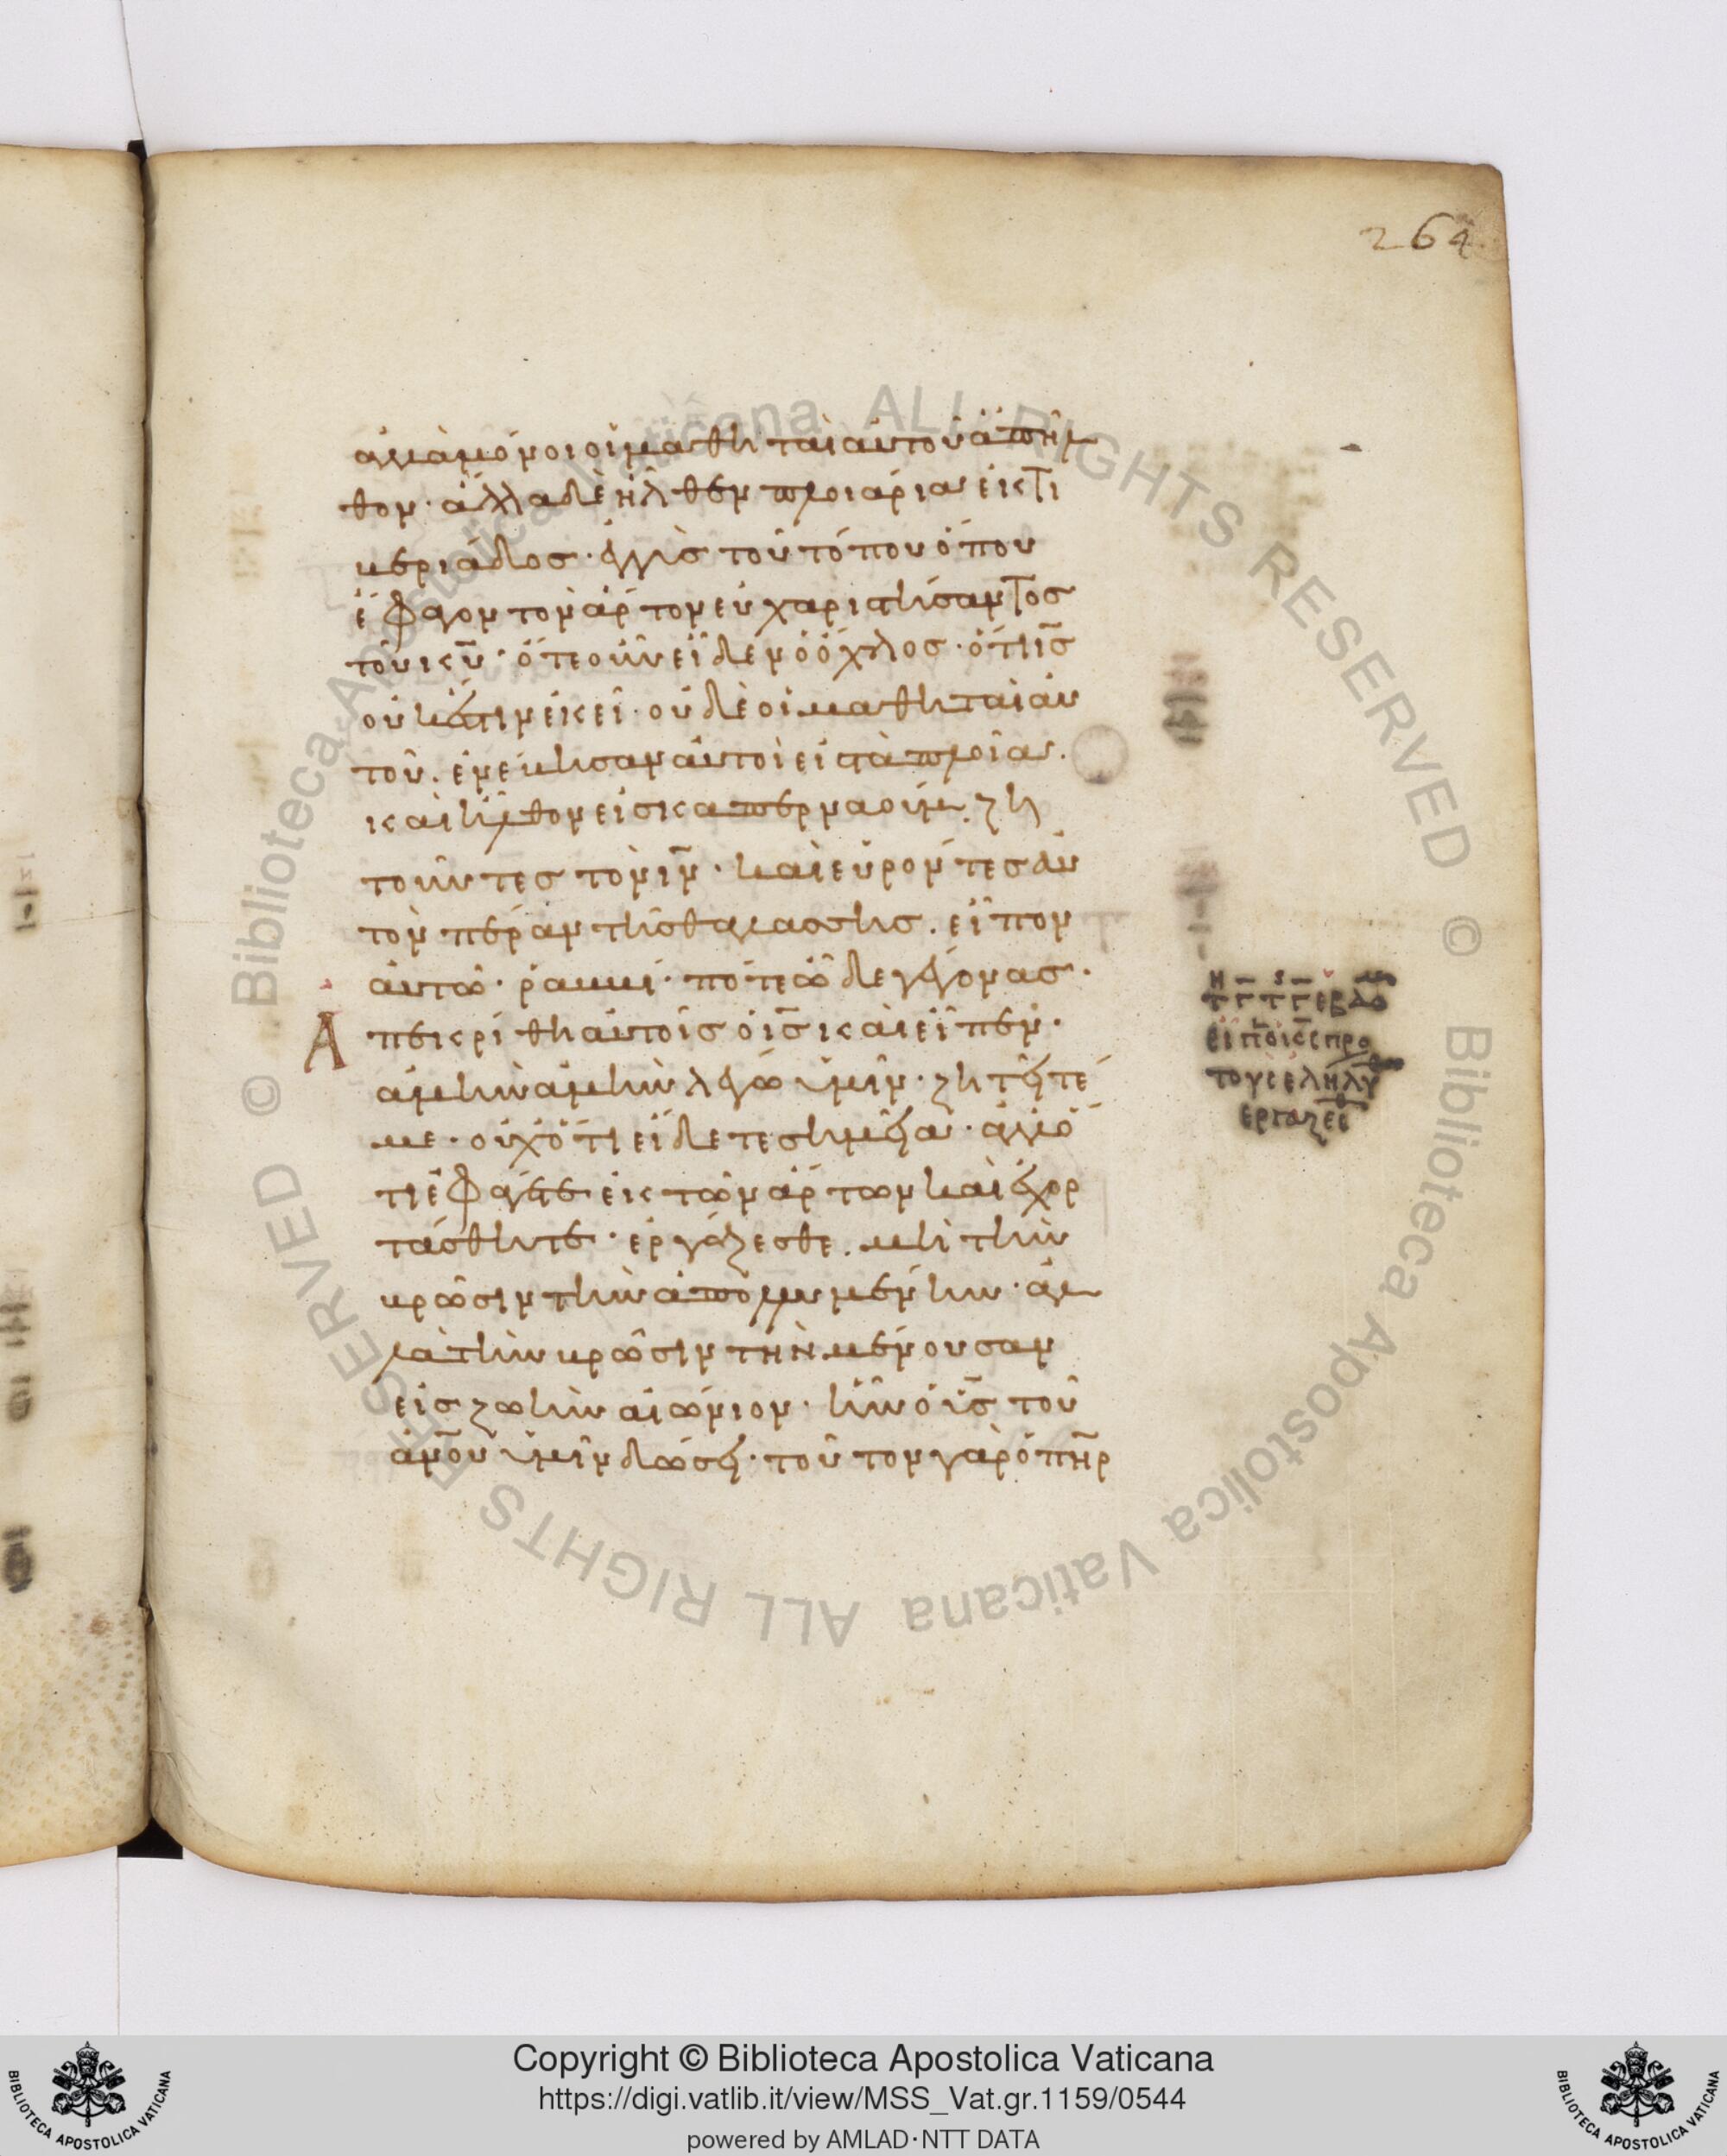 264
ἀλλὰ μόνοι οἱ μαθηταὶ αὐτοῦ ἀπῆλ
θον· ἄλλα δὲ ἦλθεν πλοιάρια ἐκ τι
βεριάδος· ἐγγὺς τοῦ τόπου ὅπου
ἔφαγον τὸν ἄρτον εὐχαριστήσαντος
τοῦ κ̅υ̅· ὅτε οὖν εἶδεν ὁ ὄχλος· ὅτι ι̅ς̅
οὐκ ἔστιν ἐκεῖ· οὐδὲ οἱ μαθηταὶ αὐ
τοῦ. ἐνέβησαν αὐτοὶ εἰς τὰ πλοῖα.
καὶ ἦλθον εἰς καπερναούμ. ζη
τοῦντες τὸν ι̅ν̅· καὶ εὑρόντες αὐ
τὸν πέραν τῆς θαλάσσης. εἶπον
αὐτῶ· ῥαββί· πότε ὧδε γέγονας·
Ἀπεκρίθη αὐτοῖς ὁ ι̅ς̅ καὶ εἶπεν·
ἀμὴν ἀμὴν λέγω ὑμῖν· ζητεῖτέ
με· οὐχ ὅτι εἴδετε σημεῖα· ἀλλ' ὅ
τι ἐφάγετε ἐκ τῶν ἄρτων καὶ ἐχορ
τάσθητε· ἐργάζεσθε. μὴ τὴν
βρῶσιν τὴν ἀπολλυμένην· ἀλ
λὰ τὴν βρῶσιν τὴν μένουσαν
εἰς ζωὴν αἰώνιον· ἣν ὁ υ̅ς̅ τοῦ
ἀ̅ν̅ο̅υ̅ ὑμῖν δώσει· τοῦτον γὰρ ὁ π̅η̅ρ̅
Copyright © Biblioteca Apostolica Vaticana
https://digi.vatlib.it/view/MSS_Vat.gr.1159/0544
powered by AMLAD·NTT DATA
BIBLIOTECA APOSTOLICA VATICANA
BIBLIOTECA APOSTOLICA VATICANA
© Biblioteca Apostolica Vaticana ALL RIGHTS RESERVED © Biblioteca Apostolica Vaticana ALL RIGHTS RESERVED